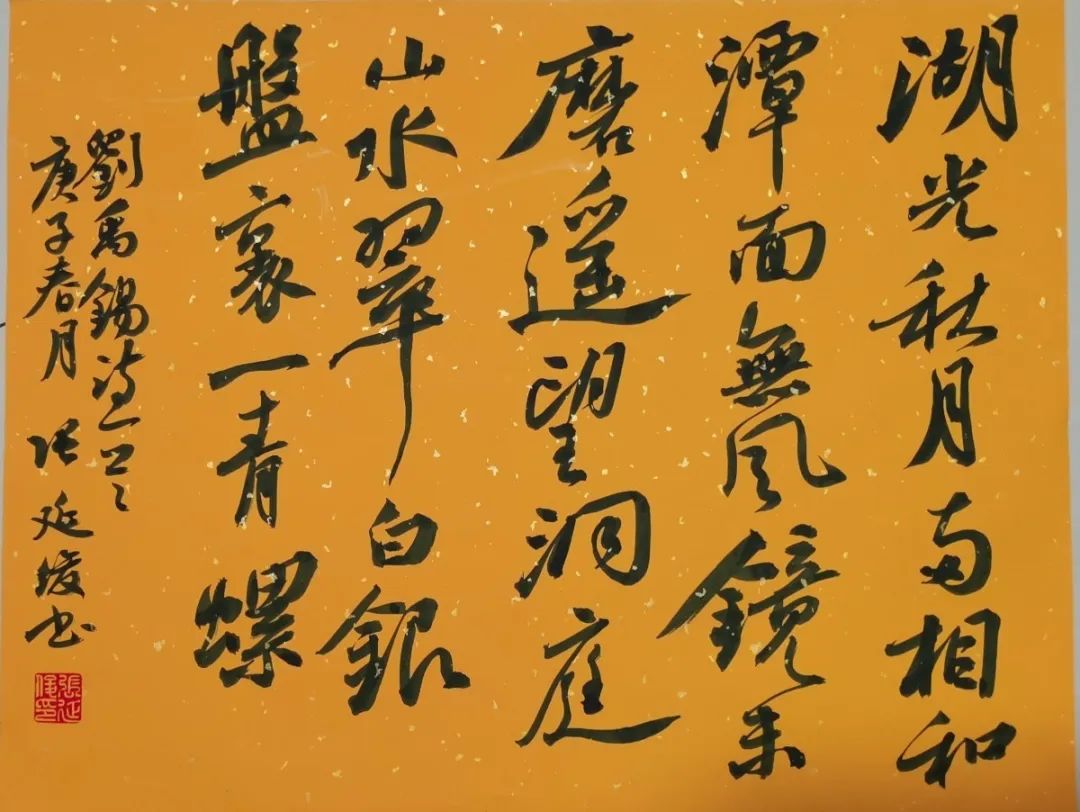 湖光秋月兩相和
潭面無風鏡未
磨遥望洞庭
山水翠白銀
盤裏一青螺
劉禹錫詩一首
庚子春月 张延俊书
張延俊印